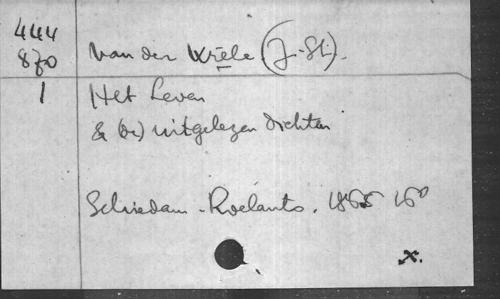 444
870 Van der Kriele (J-St).
1 Het Leven
& (de) uitgelezen dichten
Schiedam - Roelants. 1865 16°
x.